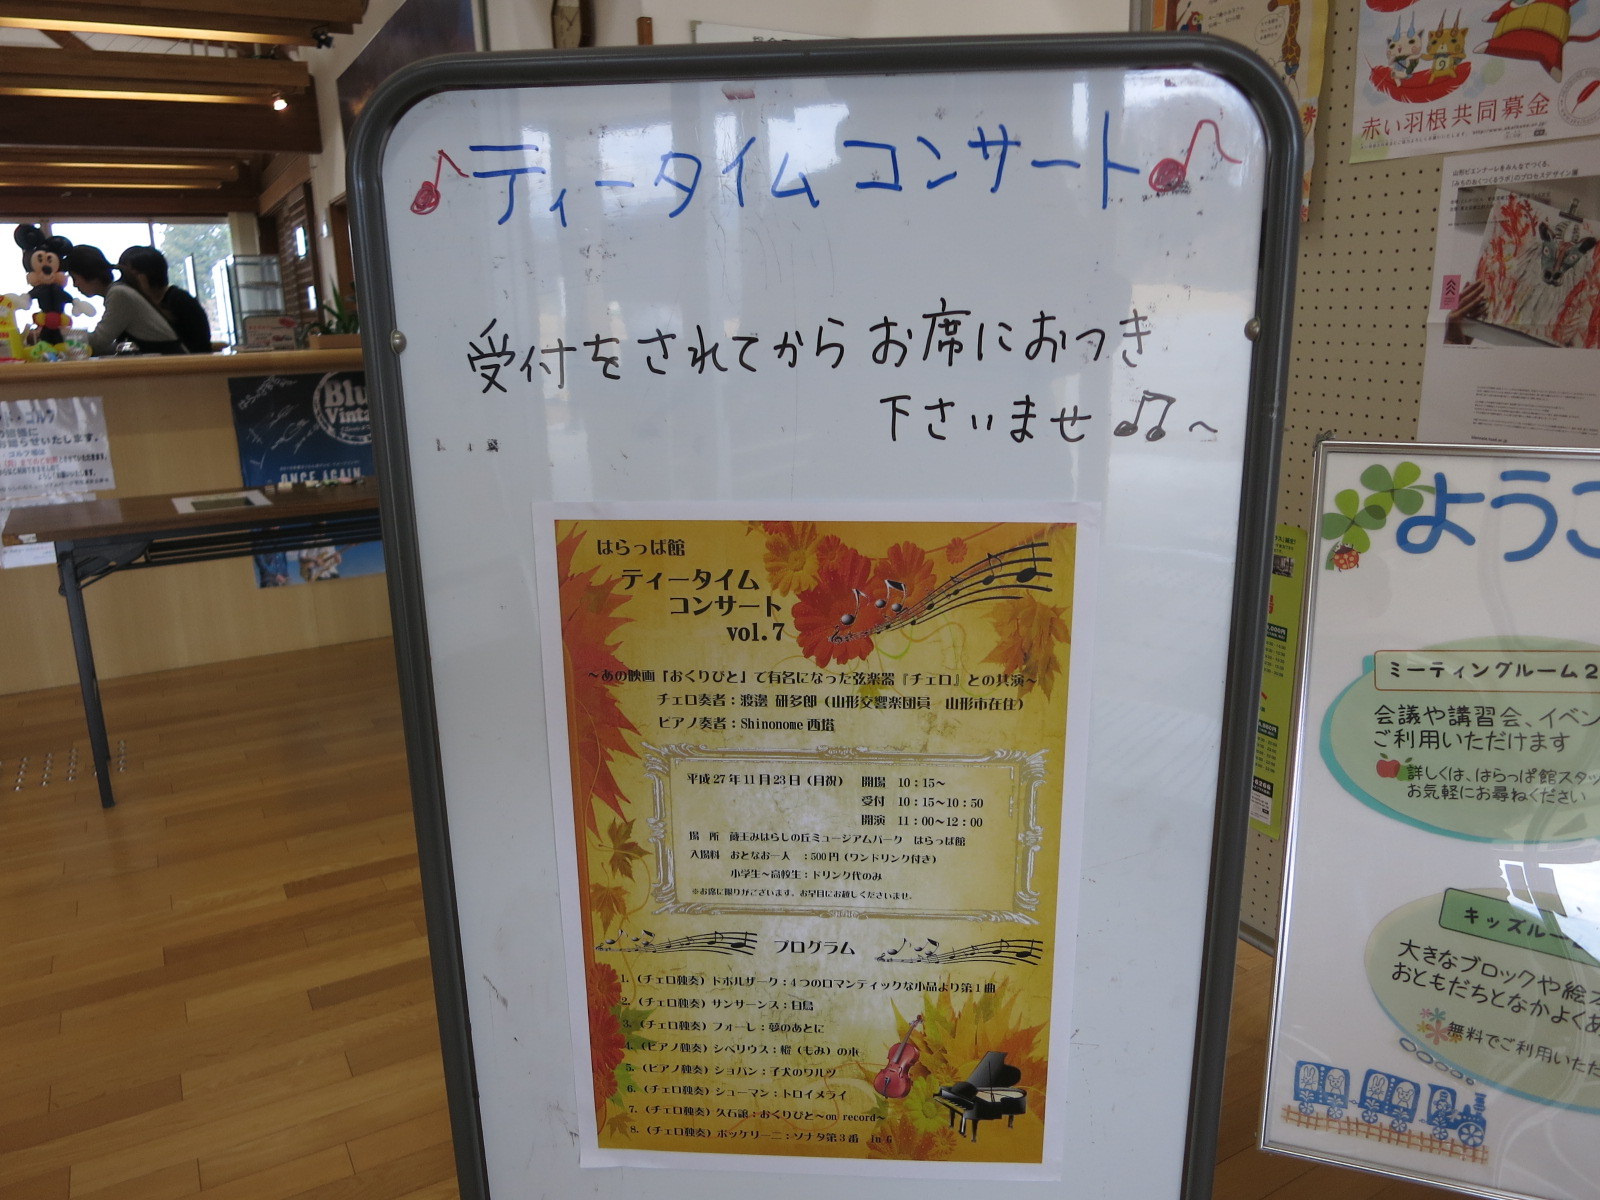 ティータイムコンサート
受付をされてから お席におつき
下さいませ♫～
はらっぱ館
ティータイム
コンサート
vol.7
～あの映画『おくりびと』で有名になった弦楽器『チェロ』との共演～
チェロ奏者：渡邊 研多郎（山形交響楽団員 山形市在住）
ピアノ奏者：Shinonome 西塔
平成27年11月23日（月祝） 開場 10：15～
受付 10：15～10：50
開演 11：00～12：00
場 所 蔵王みはらしの丘ミュージアムパーク はらっぱ館
入場料 おとなお一人 ：500円（ワンドリンク付き）
小学生～高校生：ドリンク代のみ
※お席に限りがございます。お早目にお越しくださいませ。
プログラム
1.（チェロ独奏）ドボルザーク：4つのロマンティックな小品より第1曲
2.（チェロ独奏）サンサーンス：白鳥
3.（チェロ独奏）フォーレ：夢のあとに
4.（ピアノ独奏）シベリウス：樅（もみ）の木
5.（ピアノ独奏）ショパン：子犬のワルツ
6.（チェロ独奏）シューマン：トロイメライ
7.（チェロ独奏）久石譲：おくりびと～on record～
8.（チェロ独奏）ボッケリーニ：ソナタ第3番 in G
赤い羽根共同募金
山形ビエンナーレをみんなでつくる、
「みちのおくつくるラボ」のプロセスデザイン展
ようこ
ミーティングルーム2
会議や講習会、イベン
ご利用いただけます
詳しくは、はらっぱ館スタッ
お気軽にお尋ねください
キッズルー
大きなブロックや絵本
おともだちとなかよくあ
無料でご利用いただ
ゴルフ
お知らせいたします。
Blu
Vinta
ONCE AGAIN